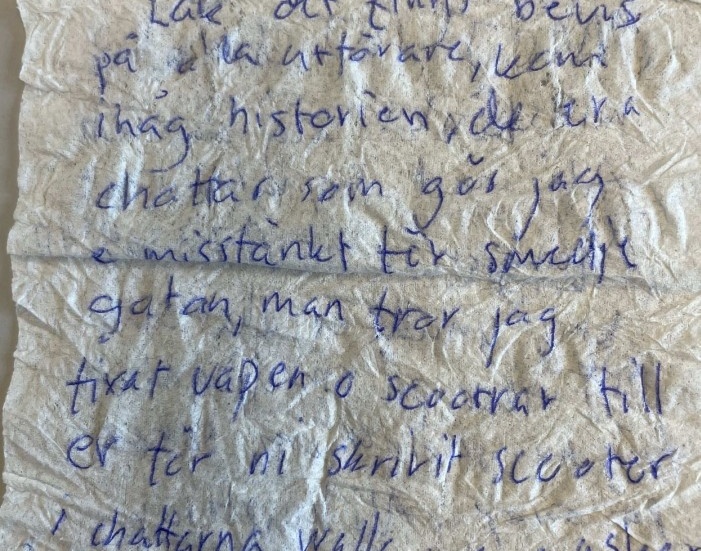 Lak det finns bevis
på alla utförare, kom
ihåg historien, de era
chattar som gör jag
e misstänkt för smedje
gatan, man tror jag
fixat vapen o scootrar till
er för ni skrivit scooter
i chattarna